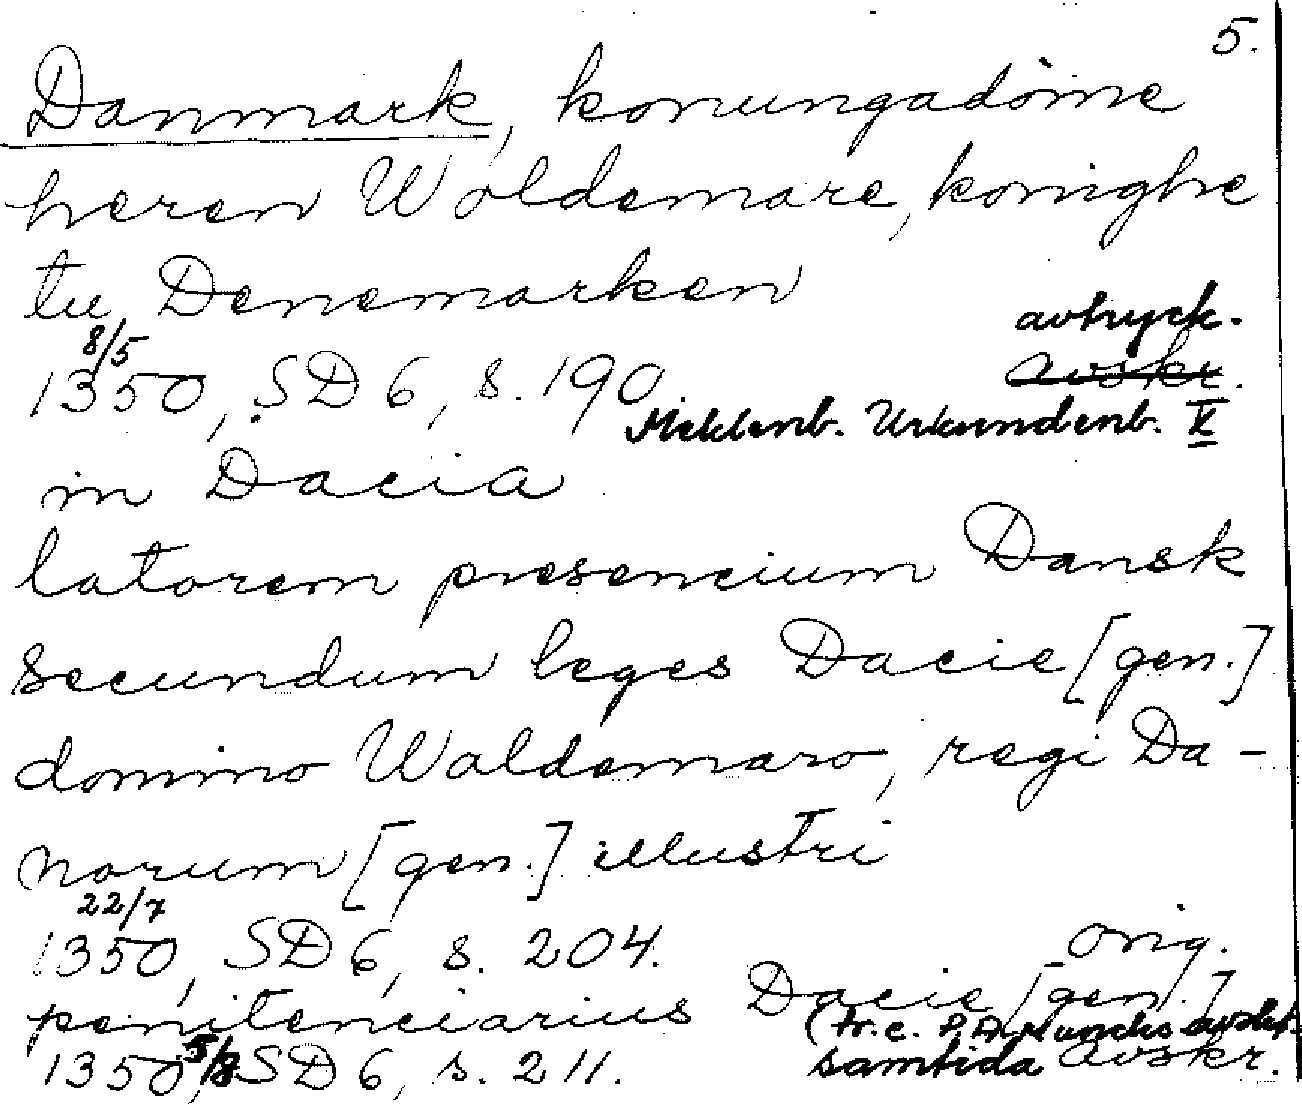 5.
Danmark, konungadöme
heren Woldemare, konighe
tu Denemarken
8/5 avtryck.
1350, SD 6, s. 190 avskr.
Meklenb. Urkundenb. X
in Dacia
latorem presencium Dansk
secundum leges Dacie [gen.]
domino Waldemaro, regi Da-
norum [gen.] illustri
22/7
1350, SD 6, s. 204. orig.
penitenciarius Dacie [gen.]
(tr. e. P. A. Munchs avskr.
1350 5/8, SD 6, s. 211. samtida avskr.